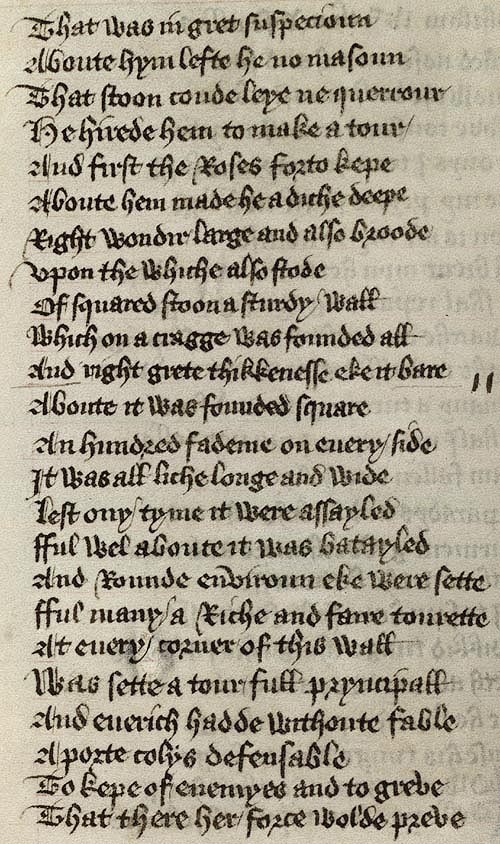 That was in gret suspecioun
Aboute hym lefte he no masoun
That stoon coude leye ne querrour
He hirede hem to make a tour
And first the Roses forto kepe
Aboute hem made he a diche deepe
Right wondir large and also broode
Vpon the whiche also stode
Of squared stoon a sturdy wall
Which on a cragge was founded all
And right grete thikkenesse eke it bare
Aboute it was founded square
An hundred fademe on euery side
It was all liche longe and wide
Lest ony tyme it were assayled
fful wel aboute it was batayled
And Rounde enviroun eke were sette
fful many a Riche and faire tourette
At euery corner of this wall
Was sette a tour full pryncipall
And euerich hadde withoute fable
A porte colys defensable
To kepe of enemyes and to greve
That there her force wolde preve